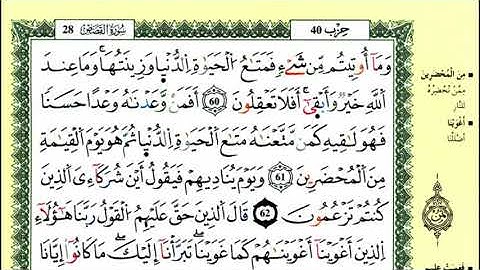 سُورَةُ القَصَصِ 28
حِزْب 40
وَمَا أُوتِيتُم مِّن شَيْءٍ فَمَتَاعُ الْحَيَوٰةِ الدُّنْيَا وَزِينَتُهَا وَمَا عِندَ
اللَّهِ خَيْرٌ وَأَبْقَىٰ أَفَلَا تَعْقِلُونَ 60 أَفَمَن وَعَدْنَٰهُ وَعْدًا حَسَنًا
فَهُوَ لَٰقِيهِ كَمَن مَّتَّعْنَٰهُ مَتَٰعَ الْحَيَوٰةِ الدُّنْيَا ثُمَّ هُوَ يَوْمَ الْقِيَٰمَةِ
مِنَ الْمُحْضَرِينَ 61 وَيَوْمَ يُنَادِيهِمْ فَيَقُولُ أَيْنَ شُرَكَاءِيَ الَّذِينَ
كُنتُمْ تَزْعُمُونَ 62 قَالَ الَّذِينَ حَقَّ عَلَيْهِمُ الْقَوْلُ رَبَّنَا هَٰؤُلَاءِ
الَّذِينَ أَغْوَيْنَا أَغْوَيْنَٰهُمْ كَمَا غَوَيْنَا تَبَرَّأْنَا إِلَيْكَ مَا كَانُوا إِيَّانَا
مِنَ الْمُحْضَرِينَ
مِمَّنْ نُحْضِرُهُ
لِلنَّارِ
أَغْوَيْنَا
أَضْلَلْنَا